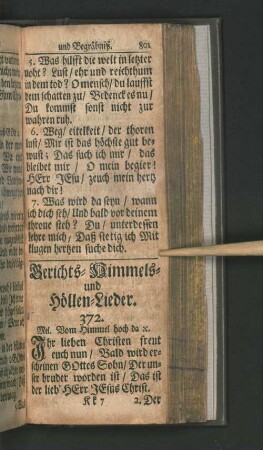 und Begräbniß. 801
5. Was hilfft die welt in letzter
noht? Lust/ ehr und reichthum
in dem tod? O mensch/ du lauffst
dem schatten zu/ Bedenck es nu/
Du kommst sonst nicht zur
wahren ruh.
6. Weg/ eitelkeit/ der thoren
lust/ Mir ist das höchste gut be-
wust; Das such ich nur/ das
bleibet mir/ O mein begier!
HErr JEsu/ zeuch mein hertz
nach dir!
7. Was wird da seyn/ wann
ich dich seh/ Und bald vor deinem
throne steh? Du/ unterdessen
lehre mich/ Daß stetig ich Mit
klugen hertzen suche dich.
Gerichts- Himmels-
und
Höllen-Lieder.
372.
Mel. Vom Himmel hoch da ꝛc.
Ihr lieben Christen freut
euch nun/ Bald wird er-
scheinen GOttes Sohn/ Der un-
ser bruder worden ist/ Das ist
der lieb' HErr JEsus Christ.
Kk 7 2. Der